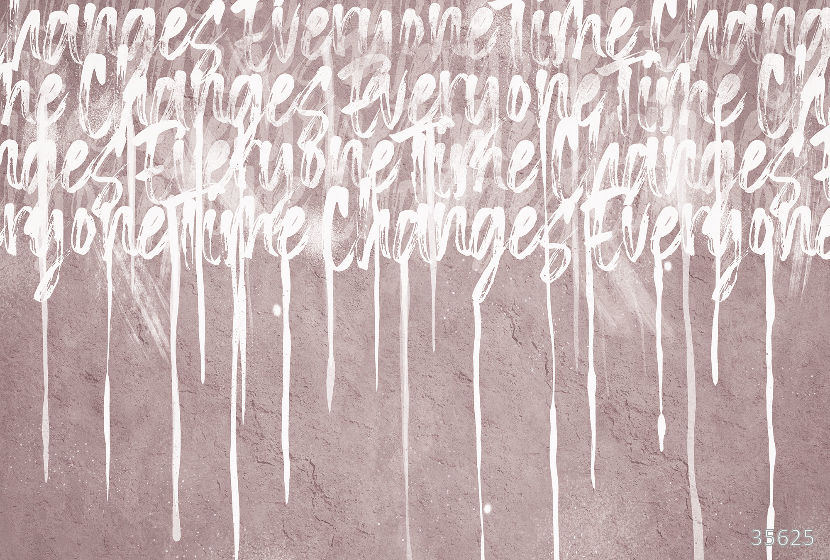 hanges Everyone Time Chang
he Changes Everyone Time Ch
nges Everyone Time Changes E
eryone Time Changes Everyone
35625